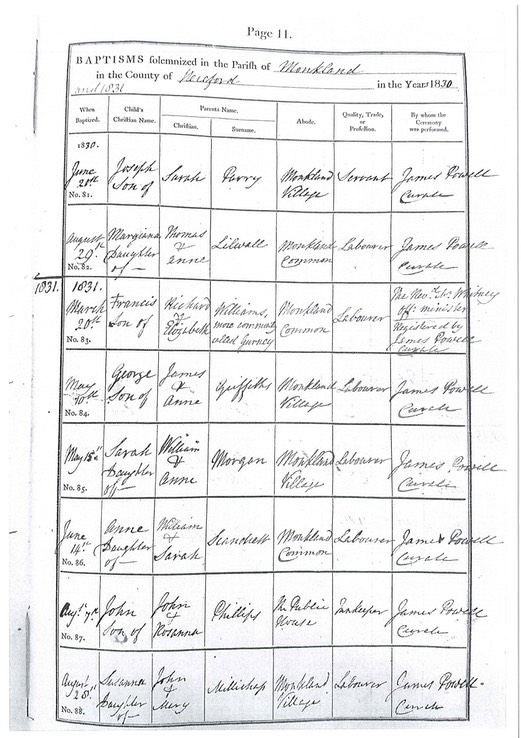 Page 11.
BAPTISMS solemnized in the Parish of Monkland
in the County of Hereford in the Year 1830
and 1831
When Baptized. Child's Christian Name. Parents Name. Abode. Quality, Trade, or Profession. By whom the Ceremony was performed.
Christian. Surname.
1830.
June 20th Joseph Son of Sarah Parry Monkland Village Servant James Powell Curate
No. 81.
August 29th Margiana Daughter of Thomas & Anne Lilwall Monkland Common Labourer James Powell Curate
No. 82.
1831. 1831.
March 20th Francis Son of Richard & Elizabeth Williams, more commonly called Gurney Monkland Common Labourer The Revd Whitney offg minister Registered by James Powell Curate
No. 83.
May 10th George Son of James & Anne Griffiths Monkland Village Labourer James Powell Curate
No. 84.
May 15th Sarah Daughter of William & Anne Morgan Monkland Village Labourer James Powell Curate
No. 85.
June 14th Anne Daughter of William & Sarah Scandrett Monkland Common Labourer James Powell Curate
No. 86.
Augt 7th John Son of John & Rosanna Phillips The Public House Innkeeper James Powell Curate
No. 87.
August 28th Susanna Daughter of John & Mary Millichap Monkland Village Labourer James Powell Curate
No. 88.